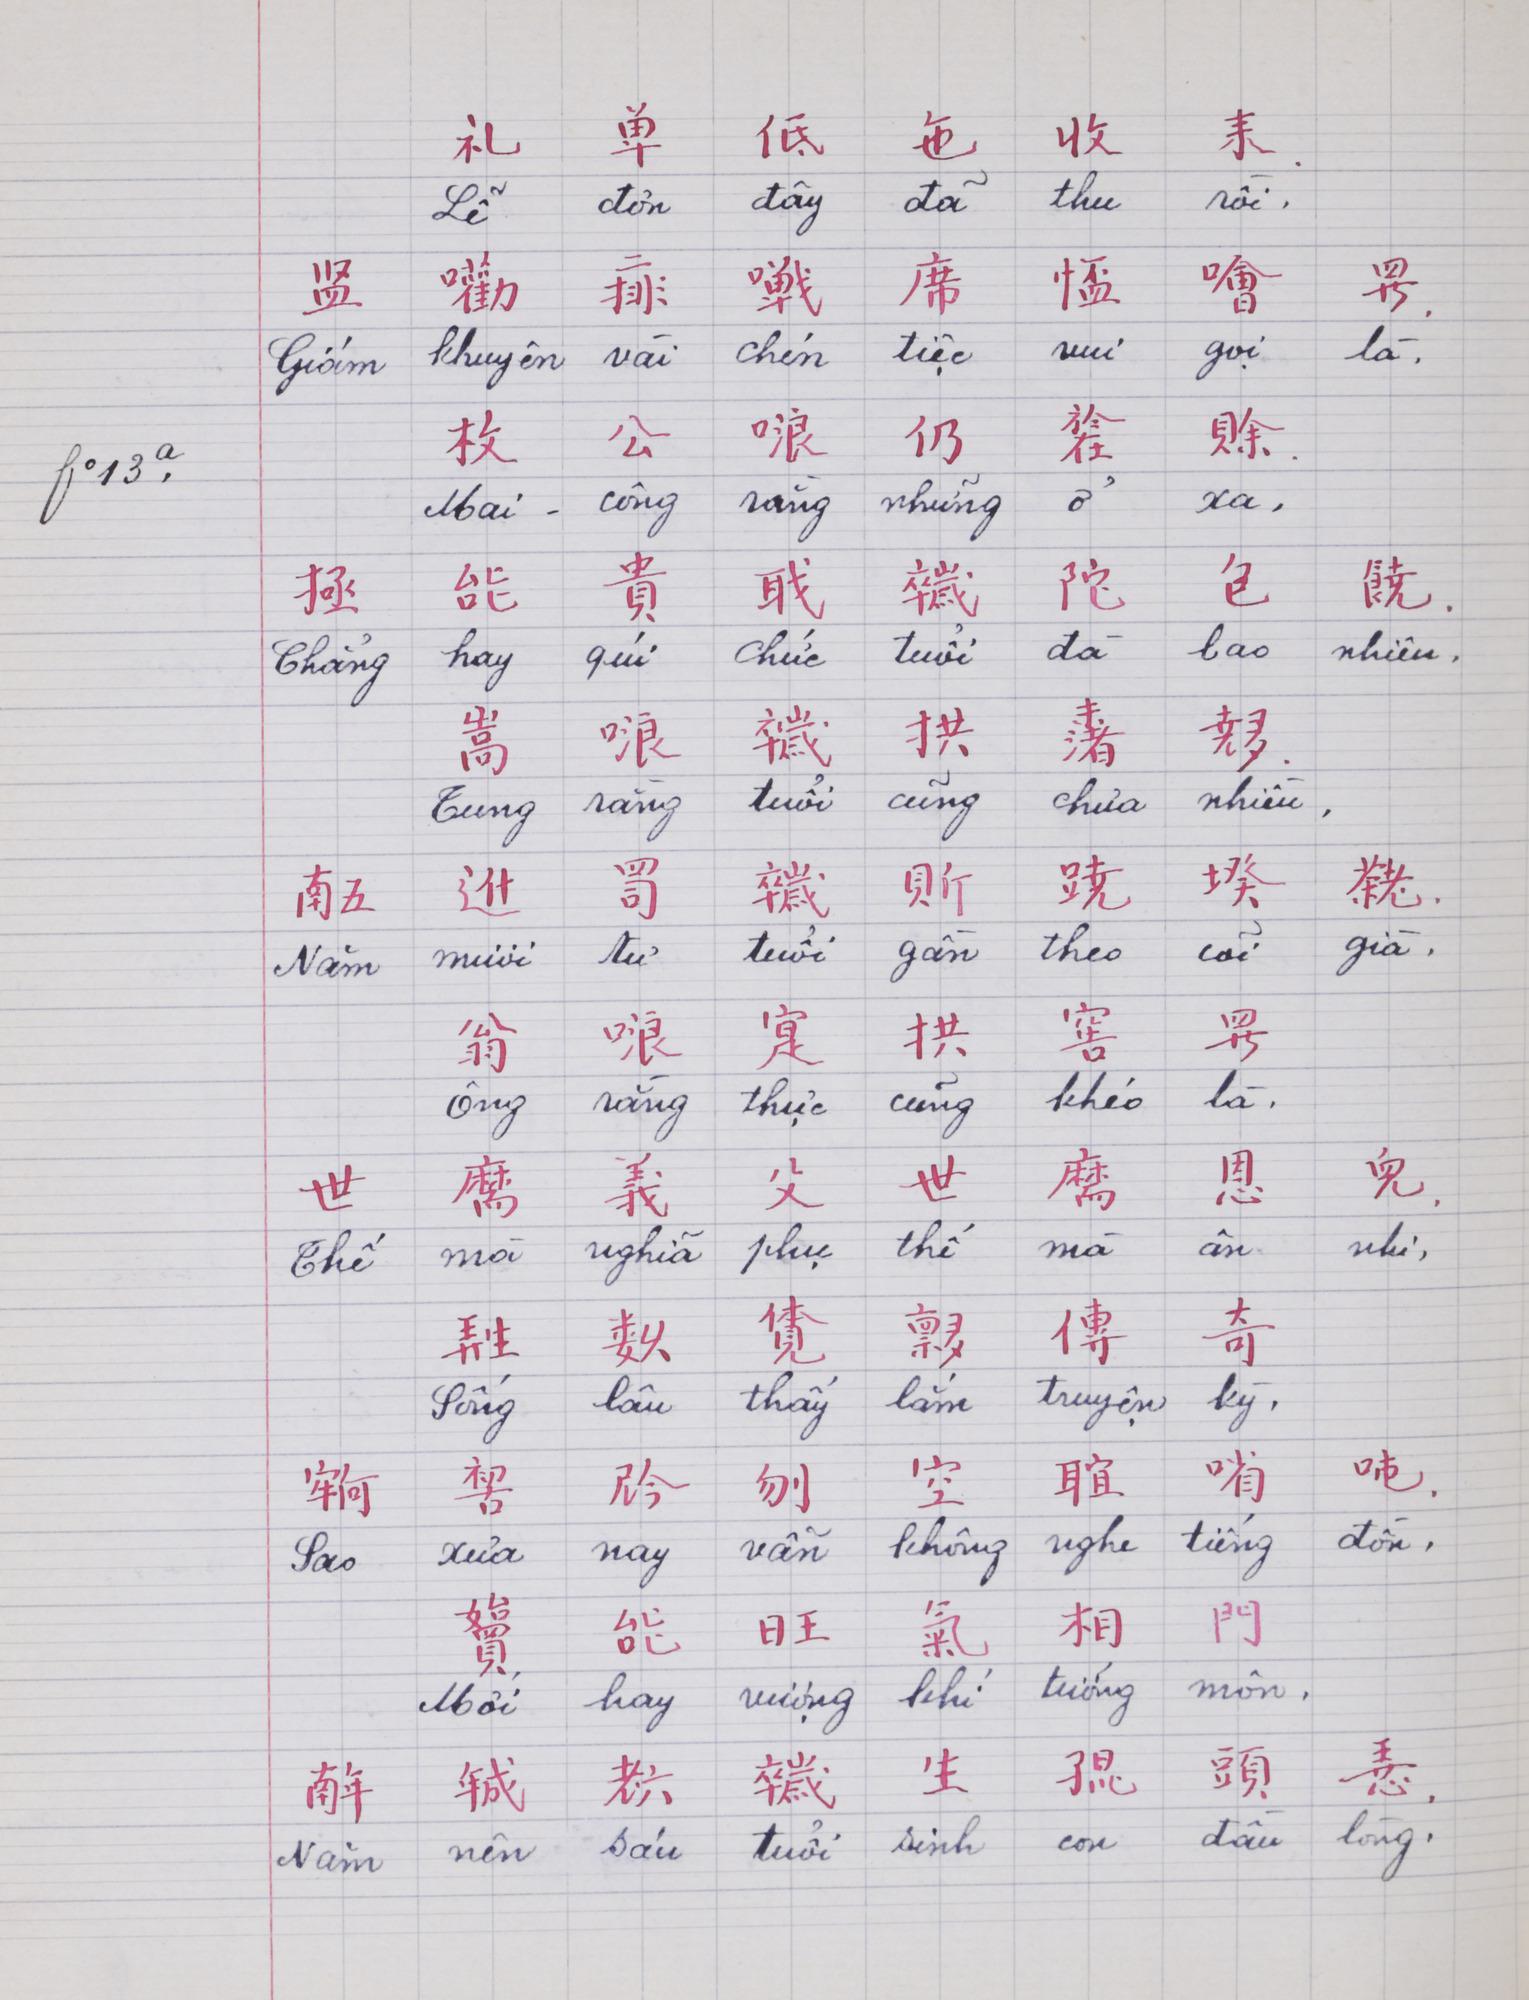 礼 单 低 㐌 收 耒.
Lễ đơn đây đã thu rồi.
监 嚾 排 𠽃 席 㤙 噲 𱺵.
Giám khuyên vài chén tiệc vui gọi là.
枚 公 哴 仍 於 賖.
f° 13ª.
Mai - công rằng những ở xa,
拯 能 貴 戝 歲 陀 包 饒.
Chẳng hay quí chức tuổi đà bao nhiêu.
嵩 哴 歲 拱 渚 𡗊.
Tung rằng tuổi cũng chưa nhiều,
𠄼 𨑮 罒 歲 𧵆 蹺 𡎝 𦓅.
Năm mươi tư tuổi gần theo cõi già.
翁 哴 寔 拱 窖 𱺵
Ông rằng thực cũng khéo là.
世 𦓡 義 父 世 𦓡 恩 児.
Thế mà nghĩa phụ thế mà ân nhi,
𤯨 数 覺 𡗋 傳 奇
Sống lâu thấy lắm truyện kỳ,
牢 𠸗 𫢩 刎 空 𦖑 㗂 吨.
Sao xưa nay vẫn không nghe tiếng đồn,
𡤓 能 旺 氣 相 門
Mới hay vượng khí tướng môn,
𢆥 𢧚 𦒹 歲 生 𡥵 頭 𢚸.
Năm nên sáu tuổi sinh con đầu lòng.